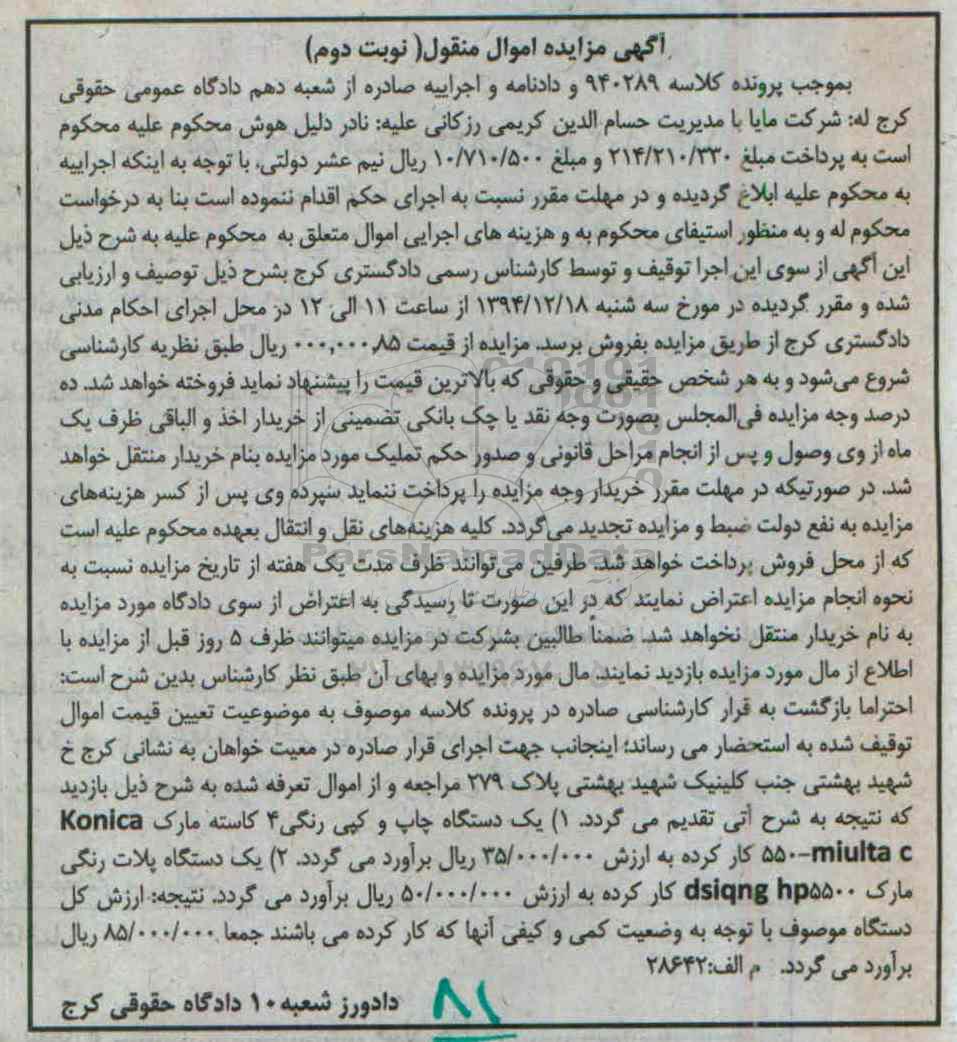 آگهی مزایده اموال منقول( نوبت دوم)
بموجب پرونده کلاسه ۹۴۰۲۸۹ و دادنامه و اجراییه صادره از شعبه دهم دادگاه عمومی حقوقی
کرج له: شرکت مایا با مدیریت حسام الدین کریمی رزکانی علیه: نادر دلیل هوش محکوم علیه محکوم
است به پرداخت مبلغ ۲۱۴/۲۱۰/۳۳۰ و مبلغ ۱۰/۷۱۰/۵۰۰ ریال نیم عشر دولتی، با توجه به اینکه اجراییه
به محکوم علیه ابلاغ گردیده و در مهلت مقرر نسبت به اجرای حکم اقدام ننموده است بنا به درخواست
محکوم له و به منظور استیفای محکوم به و هزینه های اجرایی اموال متعلق به محکوم علیه به شرح ذیل
این آگهی از سوی این اجرا توقیف و توسط کارشناس رسمی دادگستری کرج بشرح ذیل توصیف و ارزیابی
شده و مقرر گردیده در مورخ سه شنبه ۱۳۹۴/۱۲/۱۸ از ساعت ۱۱ الی ۱۲ در محل اجرای احکام مدنی
دادگستری کرج از طریق مزایده بفروش برسد. مزایده از قیمت ۰۰۰,۰۰۰,۸۵ ریال طبق نظریه کارشناسی
شروع می‌شود و به هر شخص حقیقی و حقوقی که بالاترین قیمت را پیشنهاد نماید فروخته خواهد شد. ده
درصد وجه مزایده فی‌المجلس بصورت وجه نقد یا چک بانکی تضمینی از خریدار اخذ و الباقی ظرف یک
ماه از وی وصول و پس از انجام مراحل قانونی و صدور حکم تملیک مورد مزایده بنام خریدار منتقل خواهد
شد. در صورتیکه در مهلت مقرر خریدار وجه مزایده را پرداخت ننماید سپرده وی پس از کسر هزینه‌های
مزایده به نفع دولت ضبط و مزایده تجدید می‌گردد. کلیه هزینه‌های نقل و انتقال بعهده محکوم علیه است
که از محل فروش پرداخت خواهد شد. طرفین می‌توانند ظرف مدت یک هفته از تاریخ مزایده نسبت به
نحوه انجام مزایده اعتراض نمایند که در این صورت تا رسیدگی به اعتراض از سوی دادگاه مورد مزایده
به نام خریدار منتقل نخواهد شد. ضمناً طالبین بشرکت در مزایده میتوانند ظرف ۵ روز قبل از مزایده با
اطلاع از مال مورد مزایده بازدید نمایند. مال مورد مزایده و بهای آن طبق نظر کارشناس بدین شرح است:
احتراما بازگشت به قرار کارشناسی صادره در پرونده کلاسه موصوف به موضوعیت تعیین قیمت اموال
توقیف شده به استحضار می رساند؛ اینجانب جهت اجرای قرار صادره در معیت خواهان به نشانی کرج خ
شهید بهشتی جنب کلینیک شهید بهشتی پلاک ۲۷۹ مراجعه و از اموال تعرفه شده به شرح ذیل بازدید
که نتیجه به شرح آتی تقدیم می گردد. ۱) یک دستگاه چاپ و کپی رنگی۴ کاسته مارک Konica
miulta c-۵۵۰ کار کرده به ارزش ۳۵/۰۰۰/۰۰۰ ریال برآورد می گردد. ۲) یک دستگاه پلات رنگی
مارک dsiqng hp۵۵۰۰ کار کرده به ارزش ۵۰/۰۰۰/۰۰۰ ریال برآورد می گردد. نتیجه: ارزش کل
دستگاه موصوف با توجه به وضعیت کمی و کیفی آنها که کار کرده می باشند جمعا ۸۵/۰۰۰/۰۰۰ ریال
برآورد می گردد. م الف:۲۸۶۴۲
دادورز شعبه ۱۰ دادگاه حقوقی کرج
۸۱
ParsNamadData